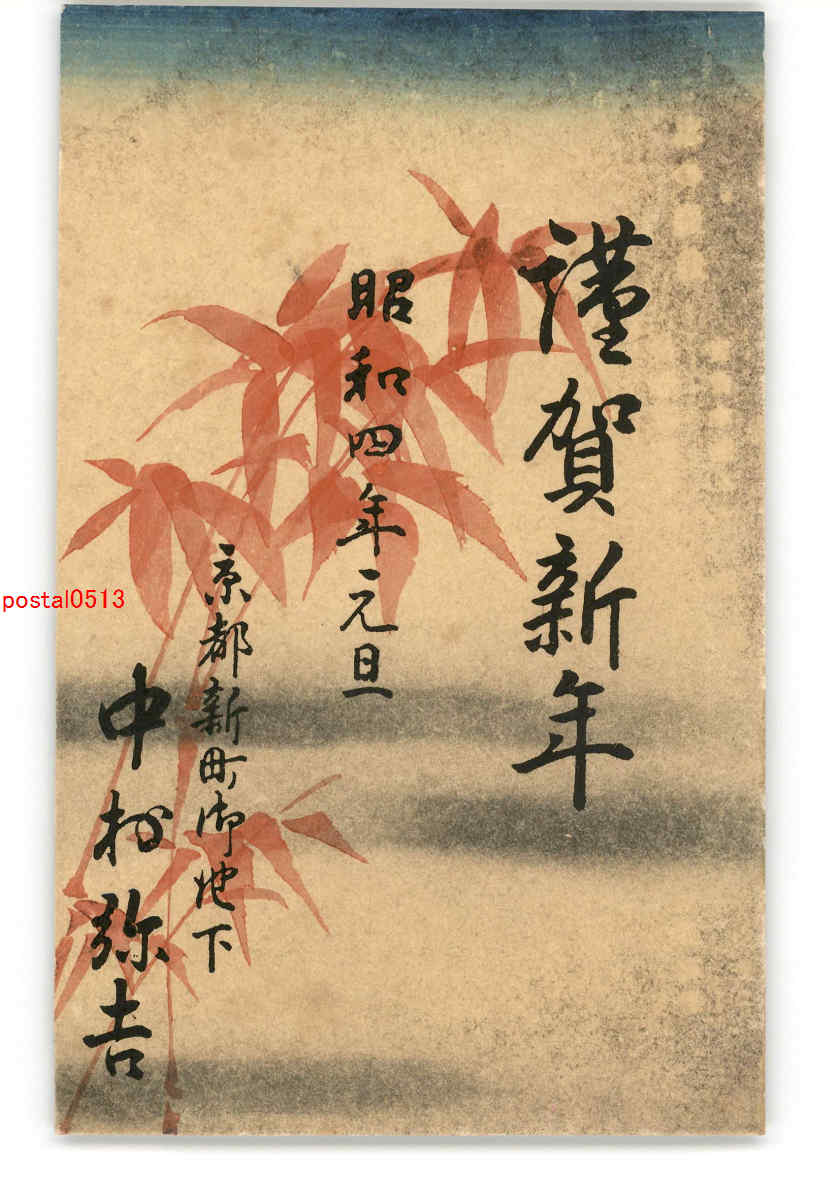 謹賀新年
昭和四年元旦
京都新町御池下
中村弥吉
postal0513